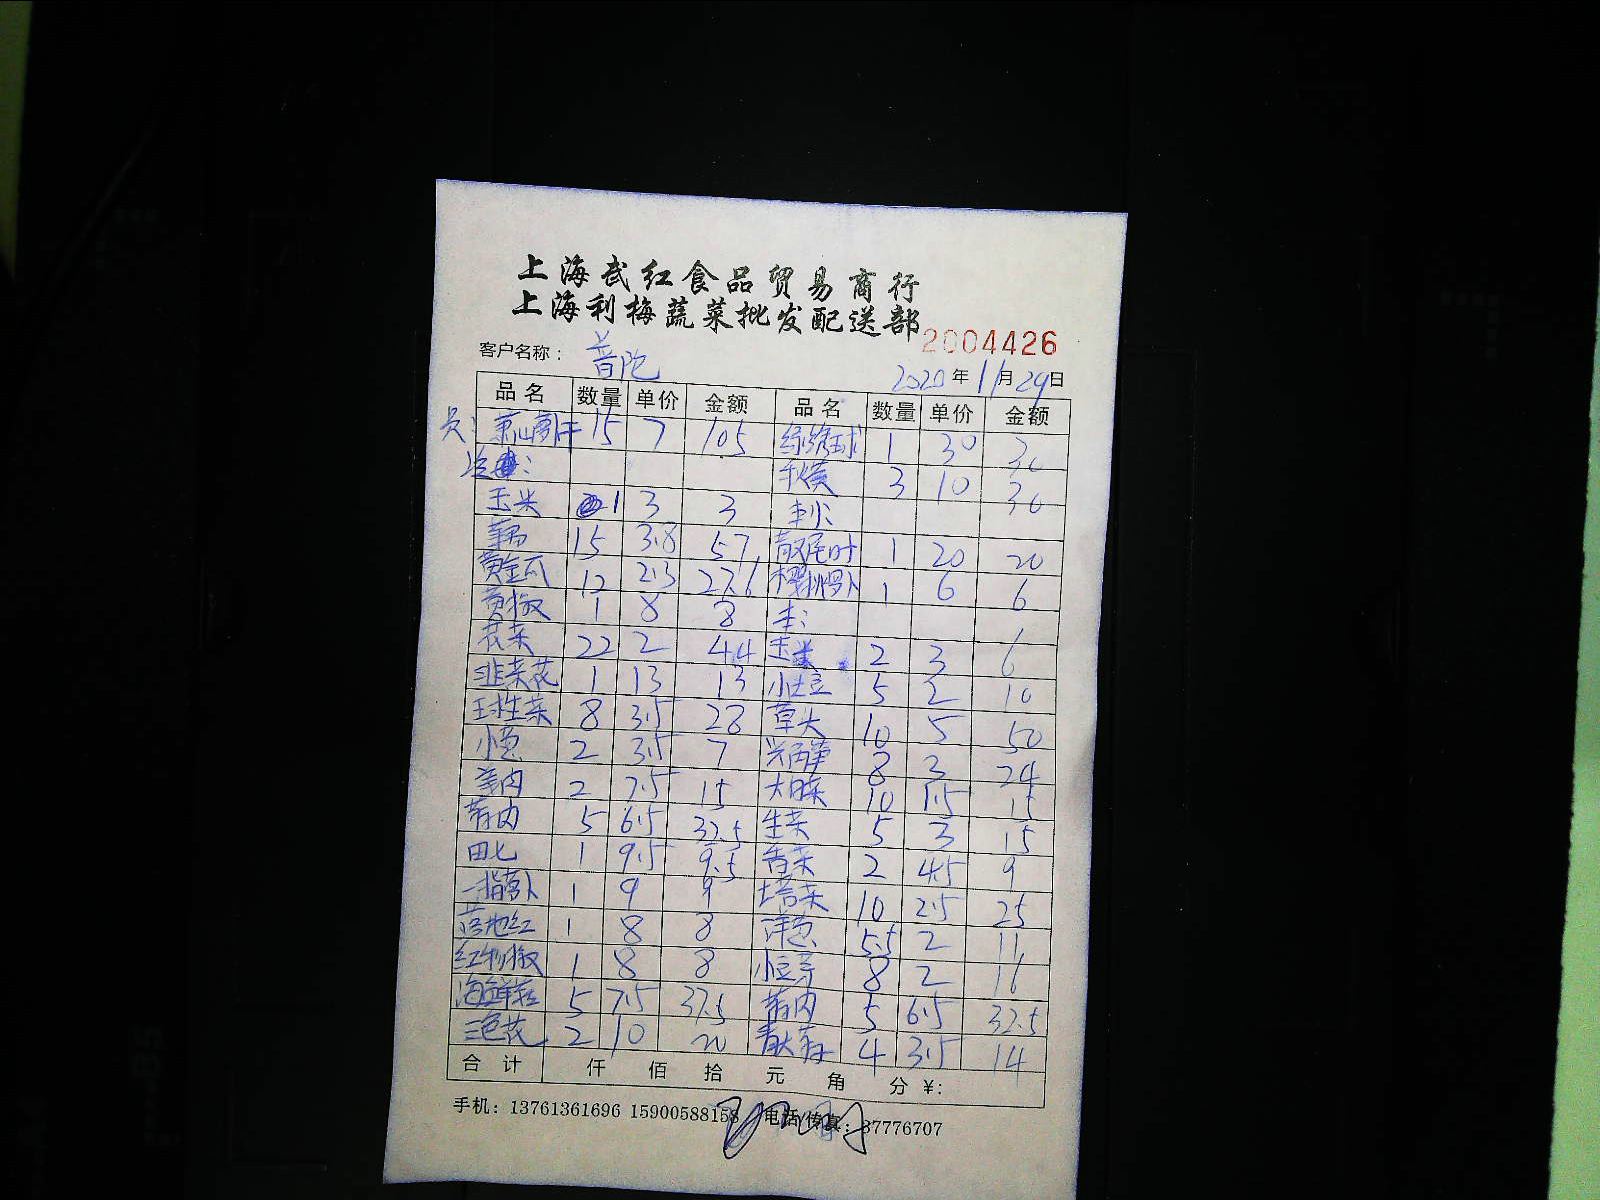 上海武红食品贸易商行
上海利梅蔬菜批发配送部
2004426
客户名称： 普陀
2020年11月29日
品名 数量 单价 金额 品名 数量 单价 金额
15 7 105 1 30 30
3 10 30
玉米 1 3 3
15 3.8 57 1 20 20
黄金瓜 12 2.3 27.6 樱桃萝卜 1 6 6
黄椒 1 8 8
花菜 22 2 44 玉米 2 3 6
韭菜花 1 13 13 小土豆 5 2 10
球生菜 8 3.5 28 草头 10 5 50
小葱 2 3.5 7 8 3 24
姜肉 2 7.5 15 10 1.5 15
蒜肉 5 6.5 32.5 生菜 5 3 15
田七 1 9.5 9.5 香菜 2 4.5 9
一指萝卜 1 9 9 塔菜 10 2.5 25
落地红 1 8 8 洋葱 5.5 2 11
红椒 1 8 8 小豆芽 8 2 16
海鲜菇 5 7.5 37.5 蒜肉 5 6.5 32.5
三色花 2 10 20 青大蒜 4 3.5 14
合计 仟 佰 拾 元 角 分 ¥：
手机：13761361696 15900588158 电话/传真：37776707